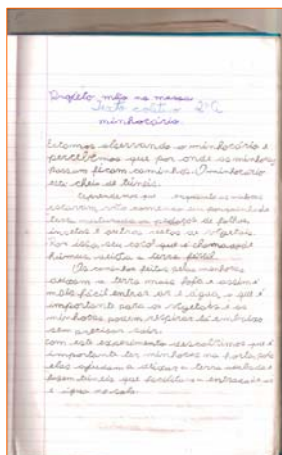 Projeto mão na massa
Texto coletivo 2º A
minhocário
Estamos observando o minhocário e
percebemos que por onde as minhocas
passam ficam caminhos. O minhocário
está cheio de túneis.
Aprendemos que enquanto as minhocas
escavam, vão comendo um pouquinho de
terra misturada a pedaços de folhas,
insetos e outros restos de vegetais.
Por isso, seu cocô que é chamado de
húmus, deixa a terra fértil.
Os caminhos feitos pelas minhocas
deixam a terra mais fofa e assim é
mais fácil entrar ar e água, o que é
importante para os vegetais e as
minhocas podem respirar lá embaixo
sem precisar sair.
com este experimento descobrimos que é
importante ter minhocas na horta, pois
elas ajudam a deixar a terra adubada e
fazem túneis que facilita a entrada de ar
e água no solo.